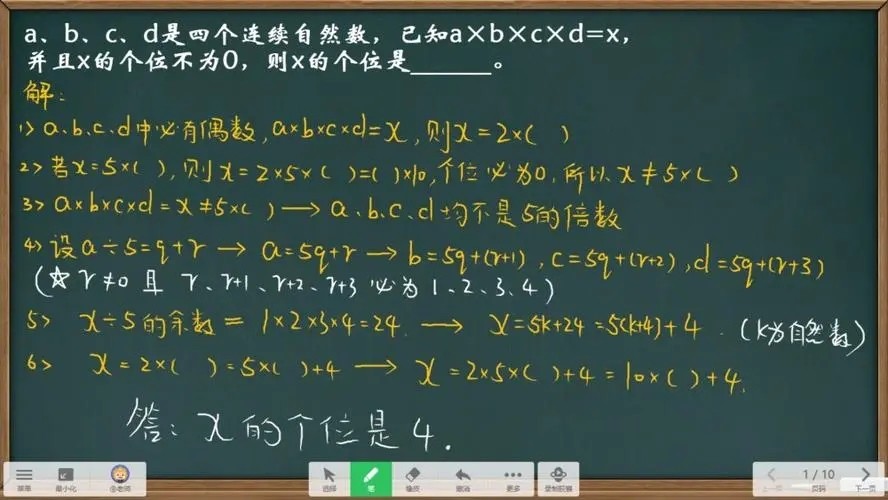 a、b、c、d是四个连续自然数，已知a×b×c×d=x，
并且x的个位不为0，则x的个位是______。
解：
1> a.b.c.d中必有偶数,a×b×c×d=x,则x=2×( )
2> 若x=5×( ),则x=2×5×( )=( )×10,个位必为0,所以x≠5×( )
3> a×b×c×d=x≠5×( )→a.b.c.d均不是5的倍数
4> 设a÷5=q+r → a=5q+r → b=5q+(r+1),c=5q+(r+2),d=5q+(r+3)
(☆ r≠0 且 r、r+1、r+2、r+3 必为1、2、3、4)
5> x÷5的余数=1×2×3×4=24. → x=5k+24=5(k+4)+4.(k为自然数)
6> x=2×( )=5×( )+4 → x=2×5×( )+4=10×( )+4.
答：x的个位是4.
菜单 最小化 选择 笔 橡皮 撤消 更多 录制胶囊 上一页 1/10 页码 下一页